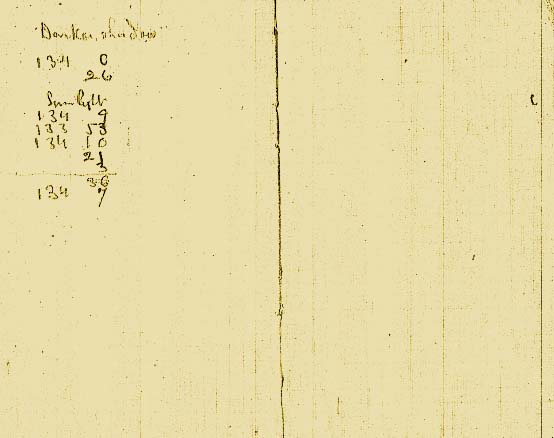 Darker, shadow
134 0
26
Sunlight
134 9
133 53
134 10
21
3
36
134 7